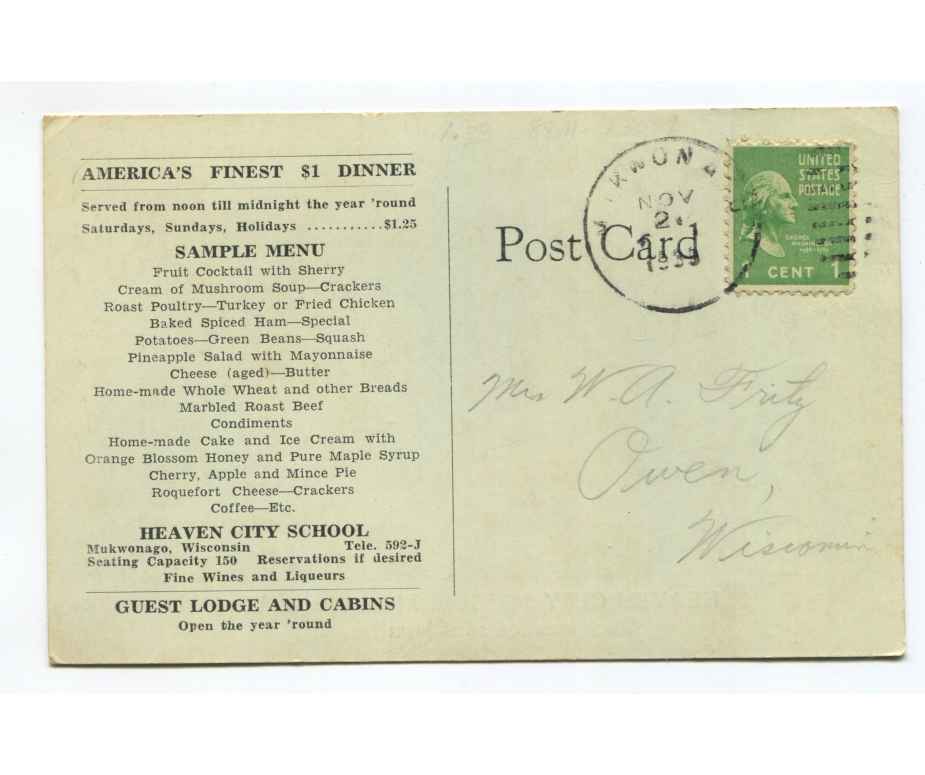 AMERICA'S FINEST $1 DINNER
Served from noon till midnight the year 'round
Saturdays, Sundays, Holidays ...........$1.25
SAMPLE MENU
Fruit Cocktail with Sherry
Cream of Mushroom Soup—Crackers
Roast Poultry—Turkey or Fried Chicken
Baked Spiced Ham—Special
Potatoes—Green Beans—Squash
Pineapple Salad with Mayonnaise
Cheese (aged)—Butter
Home-made Whole Wheat and other Breads
Marbled Roast Beef
Condiments
Home-made Cake and Ice Cream with
Orange Blossom Honey and Pure Maple Syrup
Cherry, Apple and Mince Pie
Roquefort Cheese—Crackers
Coffee—Etc.
HEAVEN CITY SCHOOL
Mukwonago, Wisconsin Tele. 592-J
Seating Capacity 150 Reservations if desired
Fine Wines and Liqueurs
GUEST LODGE AND CABINS
Open the year 'round
Post Card
NOV
UNITED
STATES
POSTAGE
GEORGE
WASHINGTON
1 CENT 1
Mrs W. A. Fritz
Owen,
Wisconsin